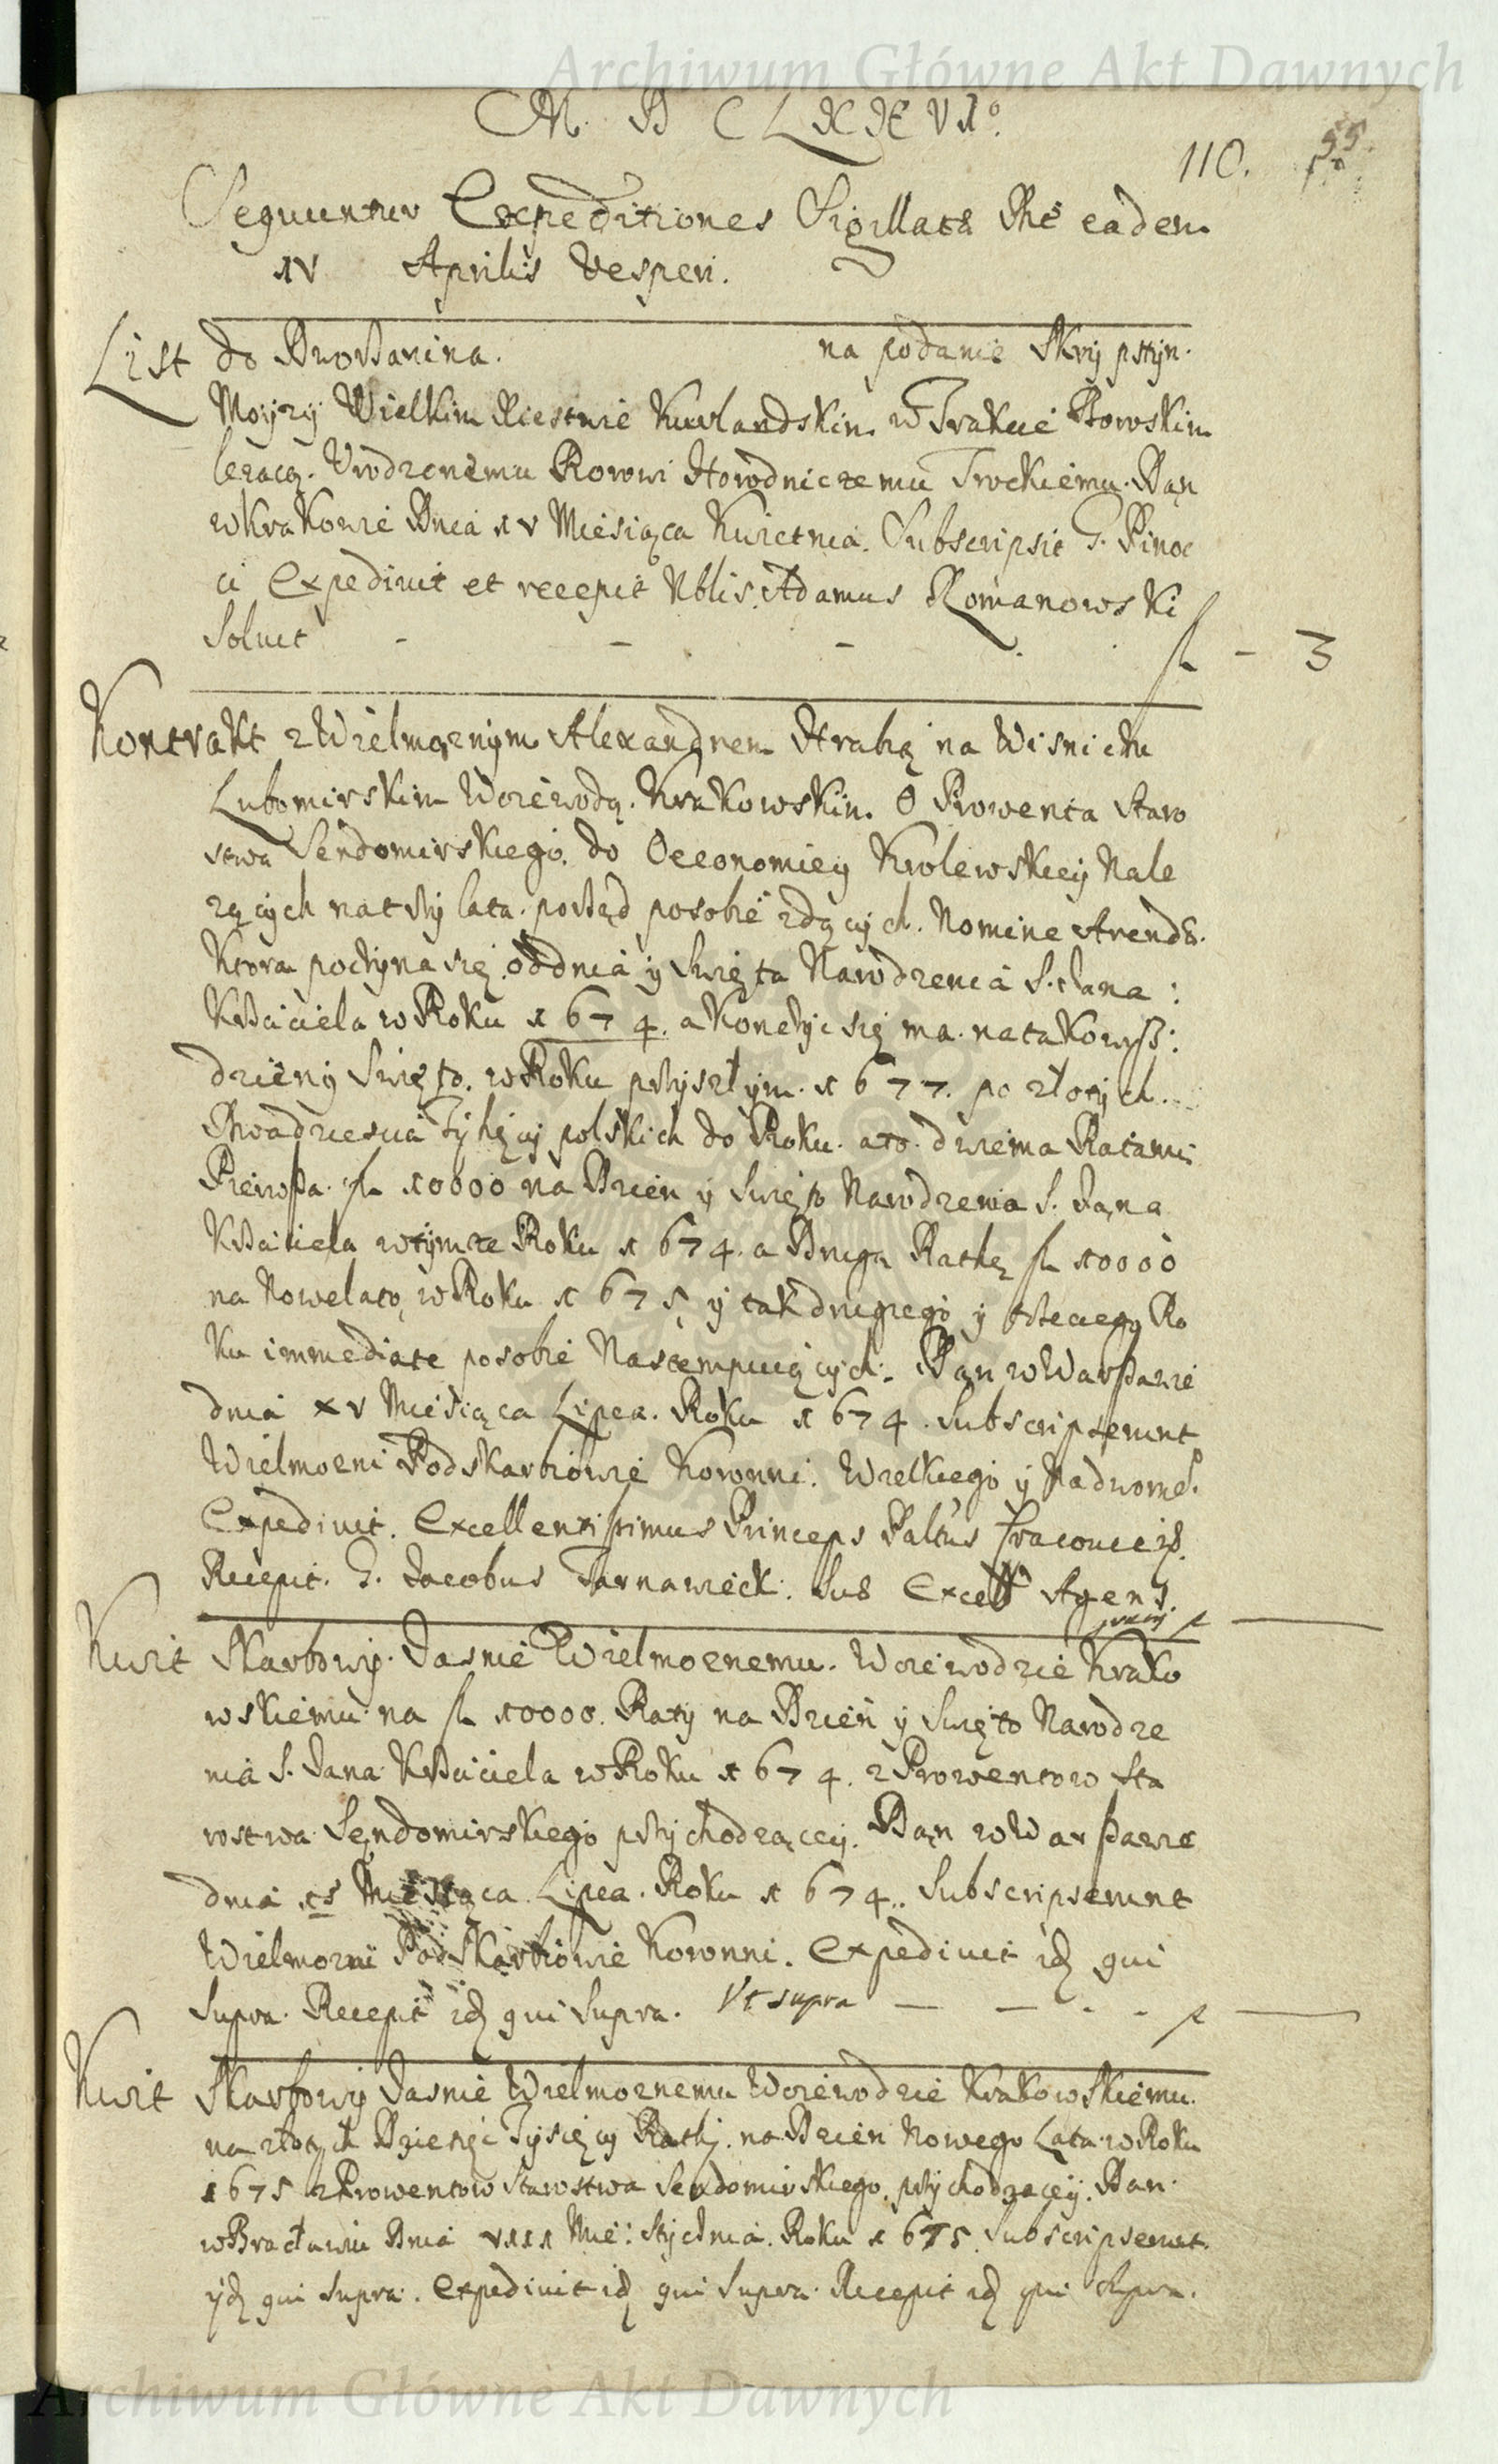 Archiwum Główne Akt Dawnych
M D C LXXVI°.
110. 55.
Sequuntur Expeditiones Sigillatæ Die eadem
XV Aprilis Vesperi.
List do Dworzanina. na podanie
Wielkim Xiestwie Kurlandskim w Trakcie
lezacą. Vrodzonemu Horodniczemu Trockiemu. Dan
w Krakowie Dnia XV Miesiąca Kwietnia. Subscripsit G. Pinoc
ci Expediuit et recepit Nblis. Adamus Romanowski
Soluit - - - fl - 3
Kontrakt z Wielmoznym Alexandrem Hrabią na Wisniczu
Lubomirskim Woiewodą. Krakowskim. O Prowenta Staro
stwa Sendomirskiego. do Oeconomiey Krolewskiey Nale
zących na trzy lata. porząd posobie idących. Nomine Arendæ.
Ktora poczyna się od dnia y Swięta Narodzenia S. Jana:
Krzciciela w Roku 1674. a Konczyc się ma. na takowysz:
dzien y Swięto. w Roku przyszłym. 1677. po złotych.
Dwadziescia Tysięcy polskich do Roku. a to. dwiema Ratami
Pierwsza. fl 10000 na Dzien y Swięto Narodzenia S. Jana
Krzciciela w tymze Roku 1674. a Druga Rathę fl 10000
na Nowelato w Roku 1675 y tak drugiego y trzeciego Ro
ku immediate posobie Nastempuiących. Dan w Warszawie
dnia XV Miesiąca Lipca. Roku 1674. Subscripserunt
Wielmozni Podskarbiowie Koronni. Wielkiego y Nadworne.
Expediuit. Excellentissimus Princeps Paltus Cracouien.
Recepit. G. Jacobus Tarnawieck. Suæ Excell Agens.
Kwit Skarbowy. Jasnie Wielmoznemu. Woiewodzie Krako
wskiemu na fl 10000. Raty na Dzien y Swięto Narodze
nia S. Jana Krzciciela w Roku 1674. z Prowentow Sta
rostwa Sendomirskiego przychodzącey. Dan w Warszawie
dnia 15 Miesiąca Lipca. Roku 1674. Subscripserunt
Wielmozni Podskarbiowie Koronni. Expediuit id qui
Supra. Recepit id qui Supra. Vt supra
Kwit Skarbowy Jasnie Wielmoznemu Woiewodzie Krakowskiemu.
na złotych Dziesięc Tysięcy Rathy. na Dzien Nowego Lata w Roku
1675 z Prowentow Starostwa Sendomirskiego. przychodzącey. Dan
w Bracławiu Dnia VIII Mie: Stycznia. Roku 1675. Subscripserunt
ijd qui Supra. Expediuit id qui Supra. Recepit id qui Supra.
Archiwum Główne Akt Dawnych